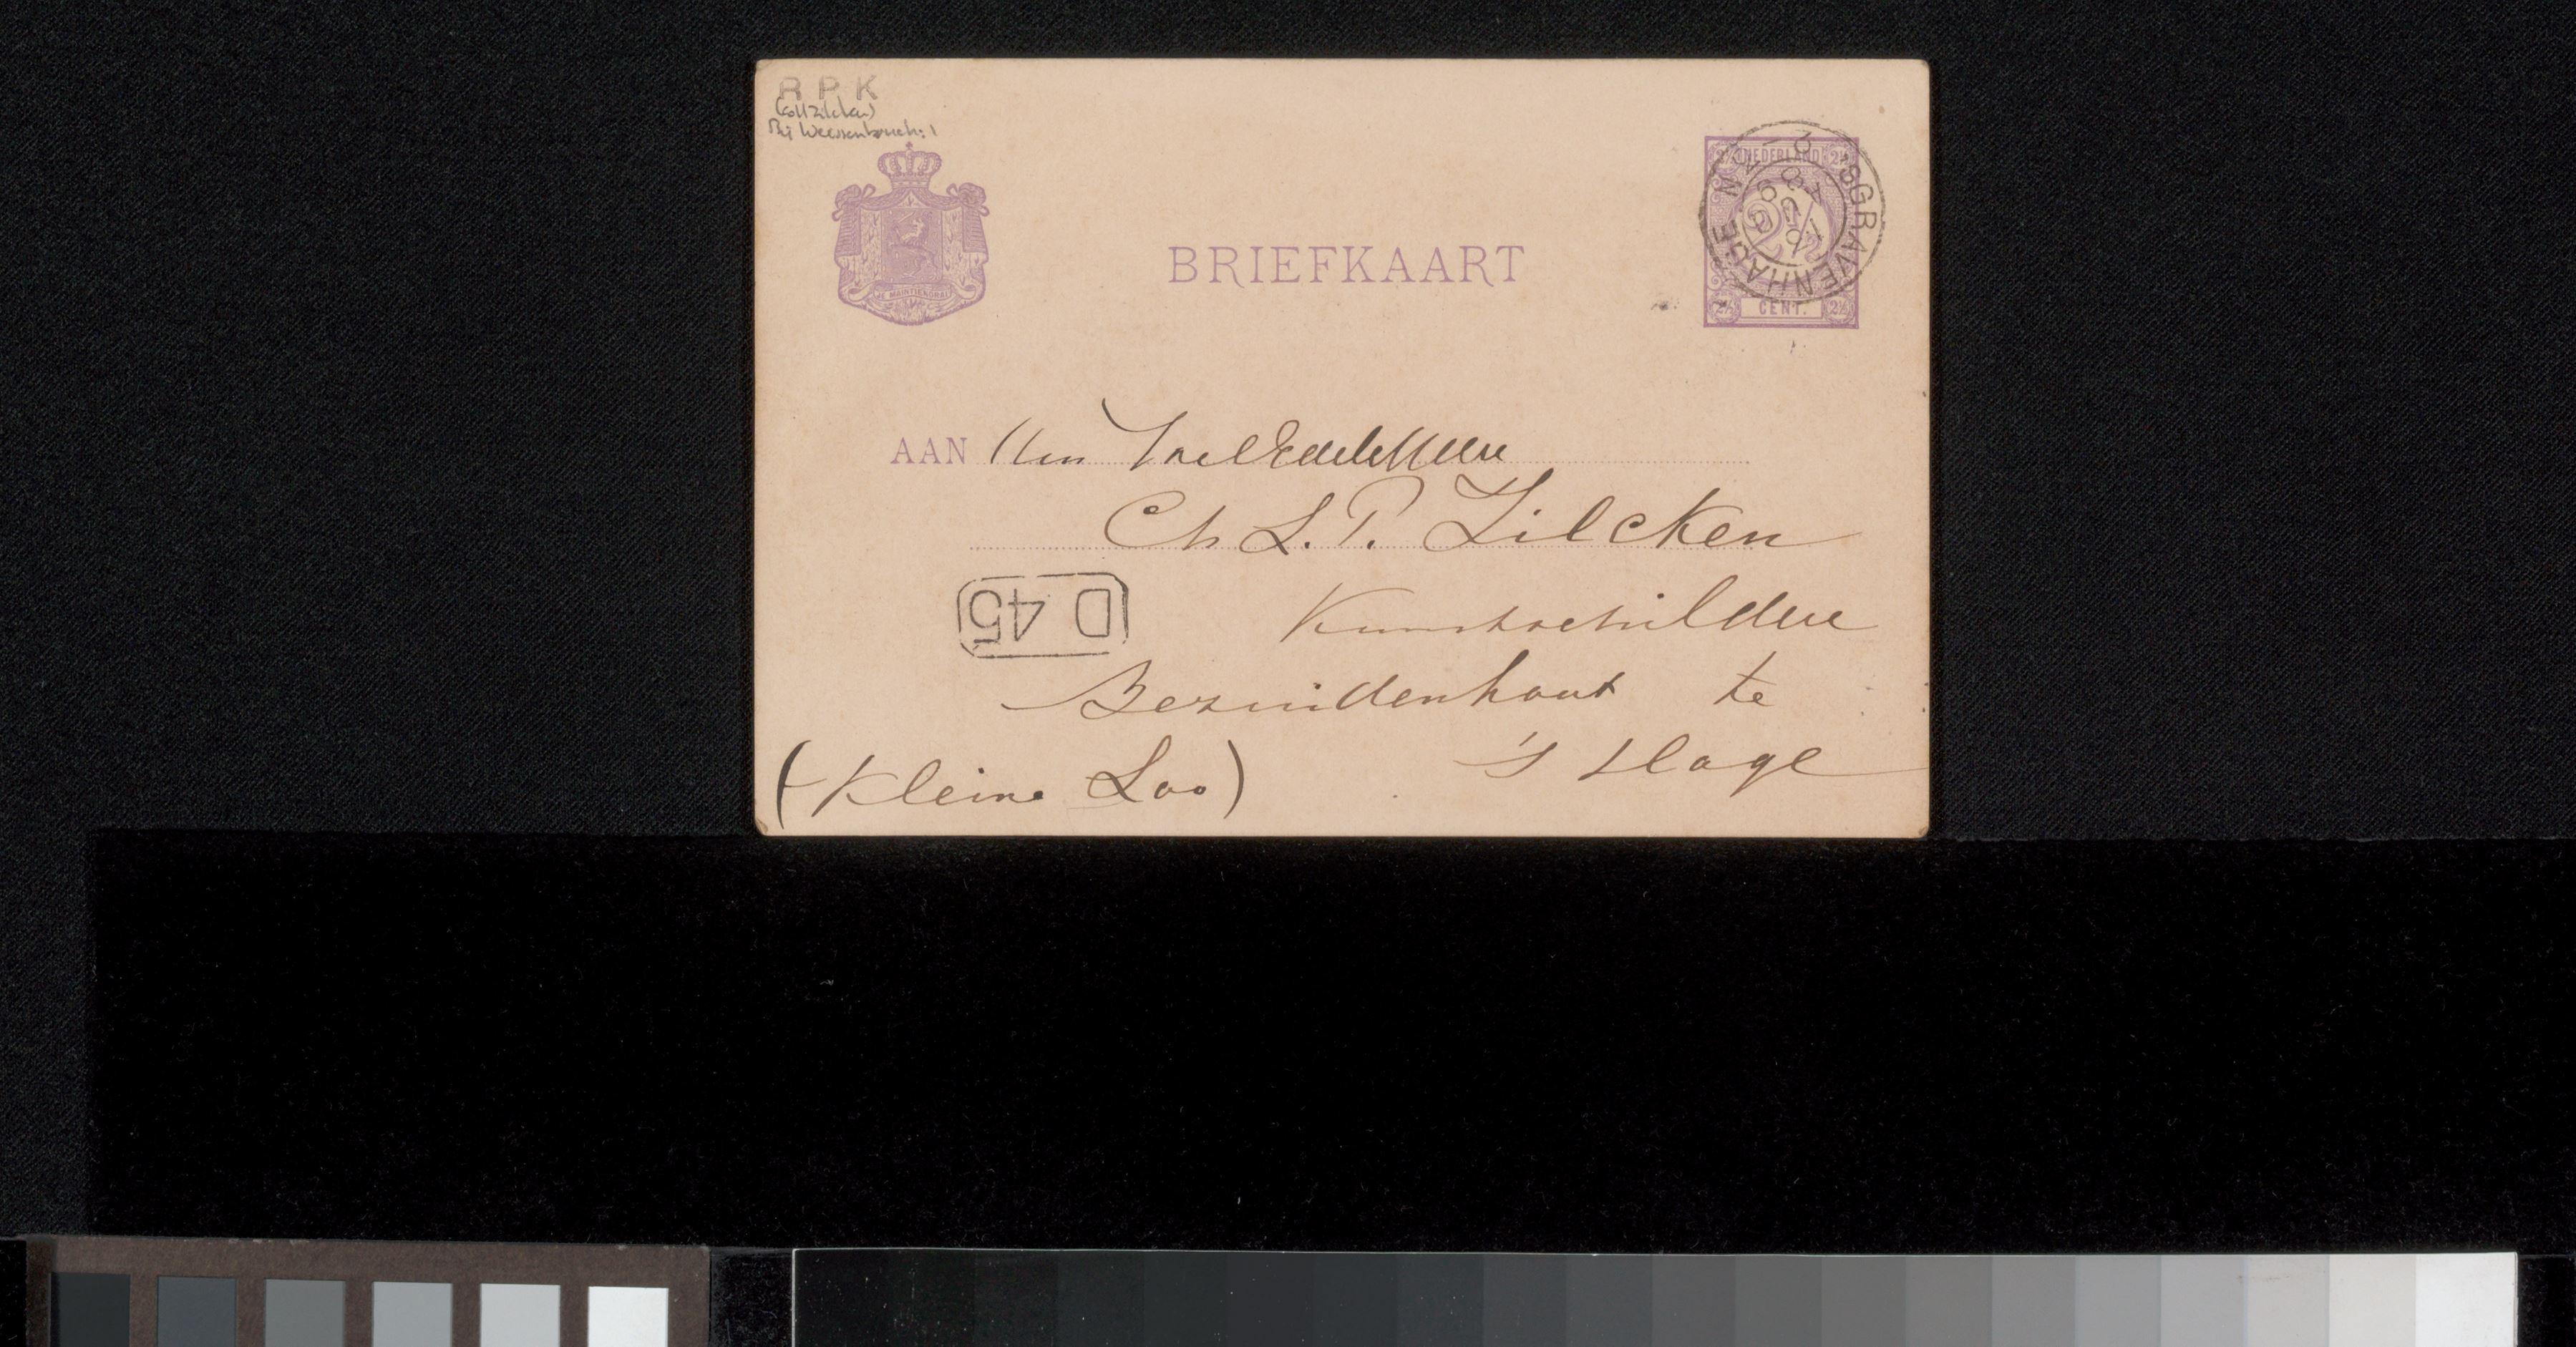 R P K
(coll Zilcken)
Bij Weissenbruch: 1
JE MAINTIENDRAI
BRIEFKAART
2½ NEDERLAND 2½
2½ CENT. 2½
'SGRAVENHAGE
AAN den WelEdeleHeere
Ch L. P. Zilcken
D 45
Kunstschilder
Bezuidenhout te
's Hage
(Kleine Loo)